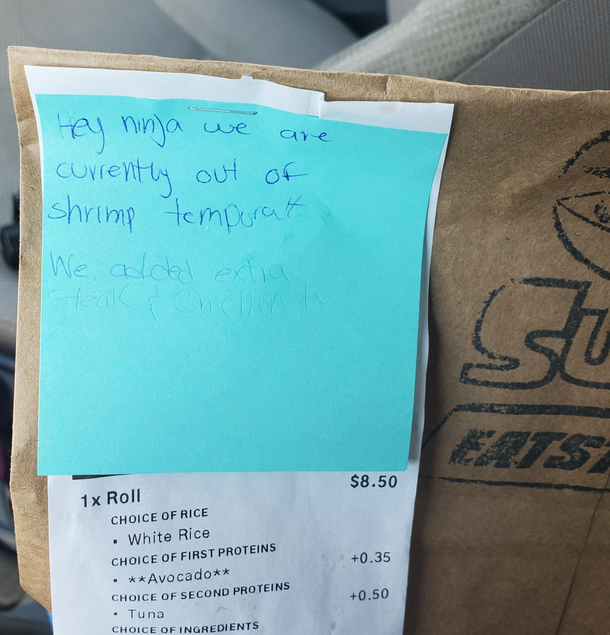 Hey ninja we are
currently out of
shrimp tempurat
We added extra
Steak &
$8.50
1x Roll
CHOICE OF RICE
• White Rice
CHOICE OF FIRST PROTEINS
+0.35
• **Avocado**
CHOICE OF SECOND PROTEINS
+0.50
• Tuna
CHOICE OF INGREDIENTS
SU
EATS